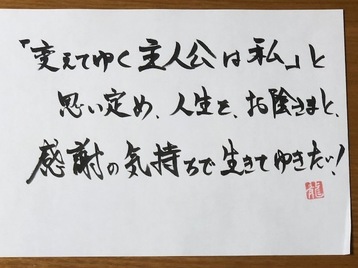 「変えてゆく主人公は私」と
思い定め、人生を、お陰さまと、
感謝の気持ちで生きてゆきたい!